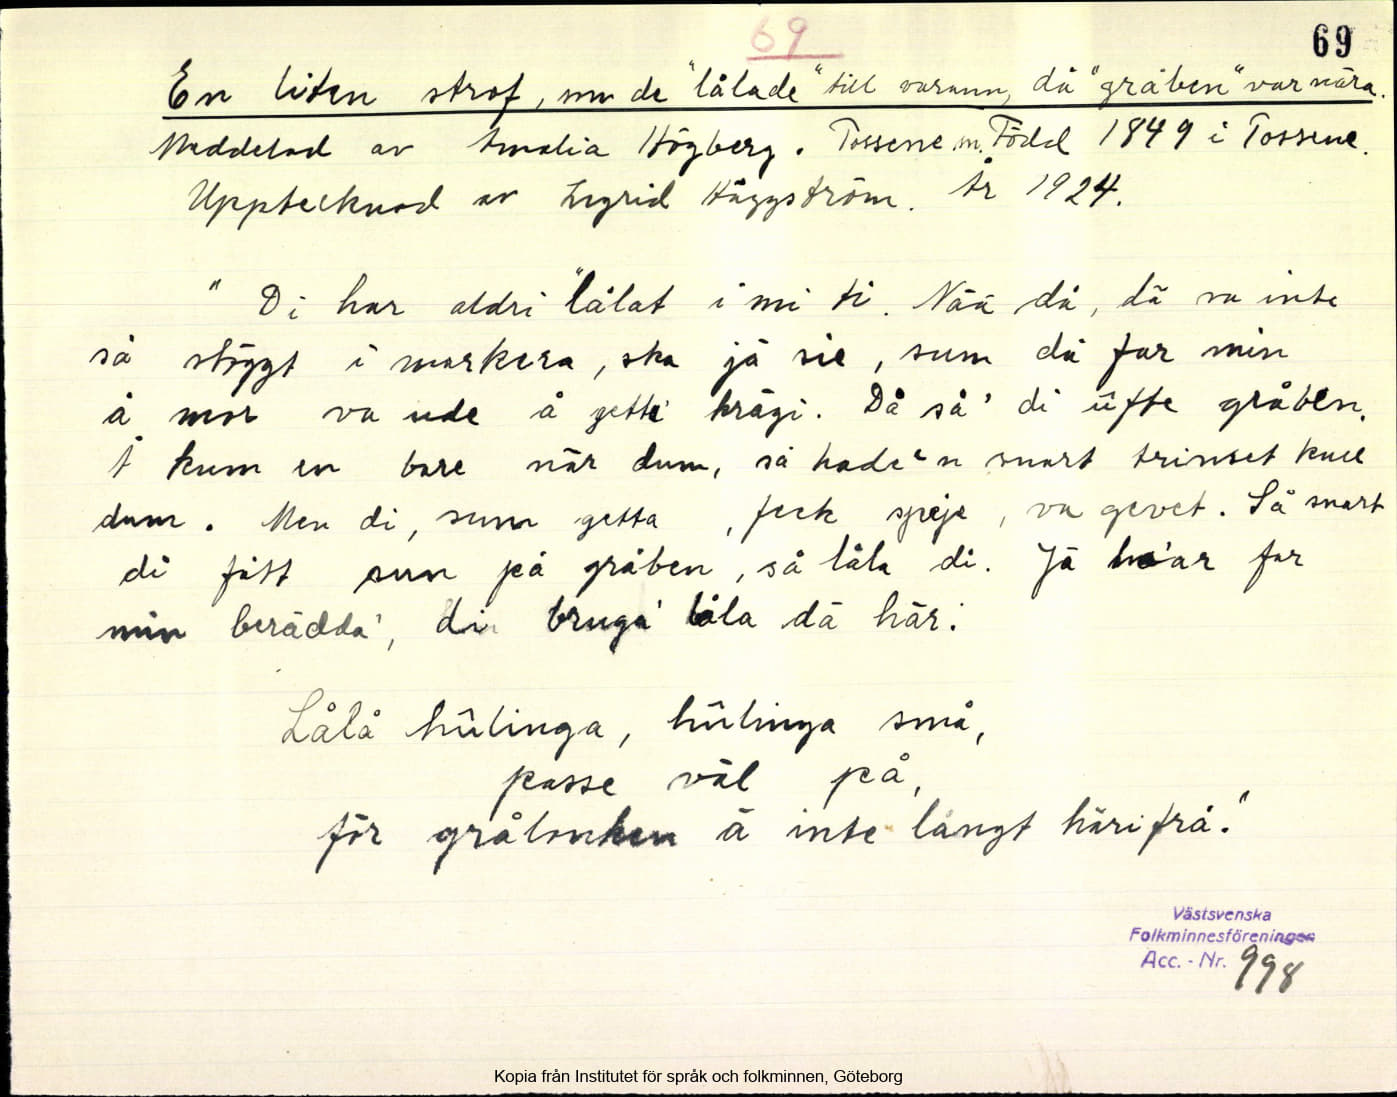 69
69
En liten strof, som de "lålade" till varann, då "gråben" var nära.
Meddelad av Amalia Högberg. Tossene sn. Född 1849 i Tossene.
Upptecknad av Ingrid Häggström. År 1924.
" Di har aldri "lålat i mi ti. Nää då, dä va inte
så stöggt i markera, ska jä sie, sum då far min
å mor va ude å getta' krägi. Då så' di ûfte gråben.
Å kum en bare när dum, så hade'n snart trinset kull
dum. Men di, sum getta , feck speje, va gevet. Så snart
di fått sun på gråben, så låla di. Jä far
min berädda', di bruga' låla dä här:
Lålå hûlinga, hûlinga små,
passe väl på,
för grålonken ä inte långt härifrå."
Västsvenska
Folkminnesföreningen
Acc. - Nr. 998
Kopia från Institutet för språk och folkminnen, Göteborg